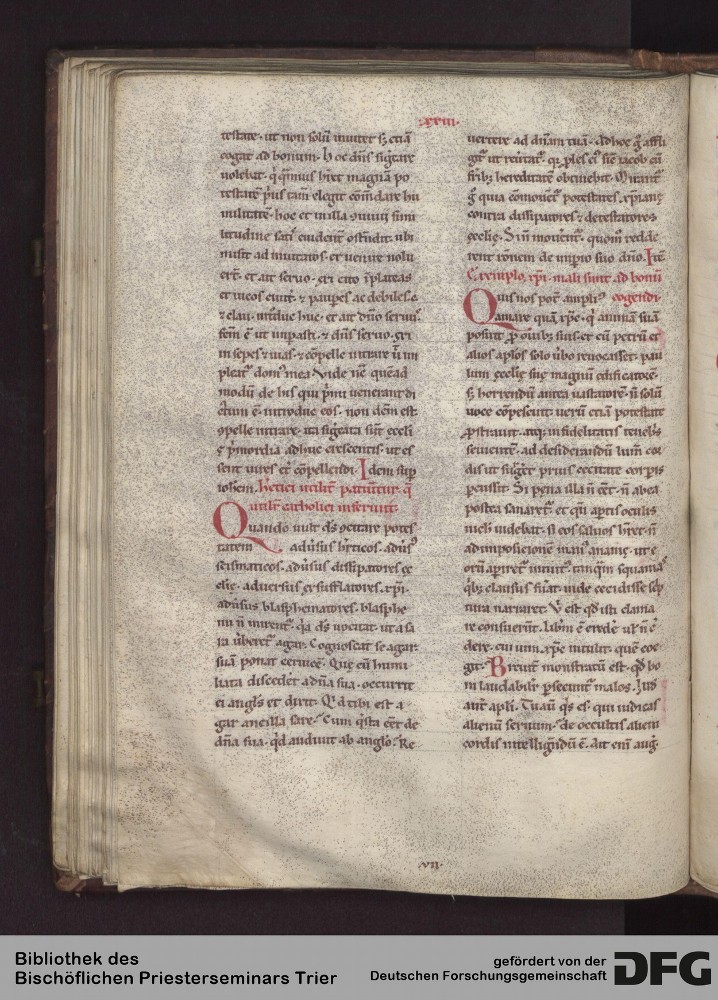 .xxiii.
testate. ut non solū inuitet s; etiā
cogat ad bonum. Hoc dn̄s sig̅care
uolebat. q̇ q̇mus hr̄et magnā po
testatē prius tam̄ elegit com̄dare hu
militatē. hoc et in illa
litudine satis euident̄ ostendit. ubi
misit ad inuitatos. et uenire nolu
er̄t. et ait seruo. exi cito ī plateas
et uicos ciuit. & paup̄es ac debiles. c
& clau. introduc huc. et ait dn̄o seruus.
fc̄m ē ut impasti. & dn̄s seruo. exi
in sepes & uias. & cōpelle intrare
pleat᷑ domꝰ mea Vide nc̄ quēad
modū de his qui p̄mi uenerant di
ctum ē. introduc eos. non dem̄ est
cōpelle intrare. ita sig̅cata sūt eccli
ę p̄mordia adhuc crescentis. ut es
sent uires et cōpellendi. Idem sup̄
iohem. Hr̄etici utilit̄ patiūtur. q̄
utilit̄ catholici inferunt.
Quando uult ds̄ cōcitare potes
tatem adūsus hr̄eticos. adūsꝰ
scismaticos. adūsus dissipatores ec
clię. aduersus exsufflatores xp̄i.
adūsus blasphematores. blasphe
mi n̄ mirent᷑. q̇a ds̄ cōcitat. ut a sa
ra uberet᷑ agar. Cognoscat se agar.
suā ponat ceruicē. Quę cū humi
liata discederet a dn̄a sua. occurrit
ei angls̄ et dixit. Qd̄ tibi est a
gar ancilla sare. Cum q̄sta eēt de
dn̄a sua. qd̄ audiuit ab anglo. Re
uertere ad dn̄am tuā. Ad hoc gͦ affli
git᷑ ut reutat᷑. qͥ ples eiꝰ sic̄ iacob cū
fr̄ib; hereditatē obtinebit. Mirant᷑
gͦ quia cōmouent᷑ potestates xp̄ianę
contra dissipatores & detestatores
ecclię. Si n̄ mouent᷑. quom̄ redde
rent rōnem de imp̄io suo dn̄o. Itē
Exemplo xp̄i. mali sunt ad bonū
cogendi.
Quis nos pot̄ ampliꝰ
amare quā xp̄c. q̇ animā suā
posuit ꝓ ouib; suis. et cū petrū et
alios aplōs solo ūbo uocasset. pau
lum ecclię suę magnū edificatorē.
s; horrendū antea uastatorē. n̄ solū
uoce cōpescuit. uerū etiā potestate
ꝓstrauit. atq; in fidelitatis tenebris
seuientē. ad desiderandū lum̄ cor
dis ut surḡet prius cecitate corp̄is
ꝑcussit. Si pena illa n̄ eēt. n̄ ab ea
postea sanaret᷑. et qn̄ aptis oculis
nichil uidebat. si eos saluos hr̄et. n̄
ad imposicionē manꝰ ananię. ut e
orū apiret᷑ intuitꝰ. tanq̄m squamaſ
q̇bꝰ clausus fuāt. inde cecidisse sep
tura narraret. V̄ est qd̄ isti clama
re consueuerūt. Liberū ē credere uł n̄ c̄
dere. cui uim xp̄c intulit. quē coe
git. Breuit̄ monstratū est. qd̄ bo
ni laudabilit̄ ꝑsecunt᷑ malos.
aut̄ apłi. Tu aut̄ q̇s es. qui iudicas
alienū seruum. de occultis alieni
cordis intelligendū ē. Ait enī aug̅.
.vii.
Bibliothek des
Bischöflichen Priesterseminars Trier
gefördert von der
Deutschen Forschungsgemeinschaft
DFG